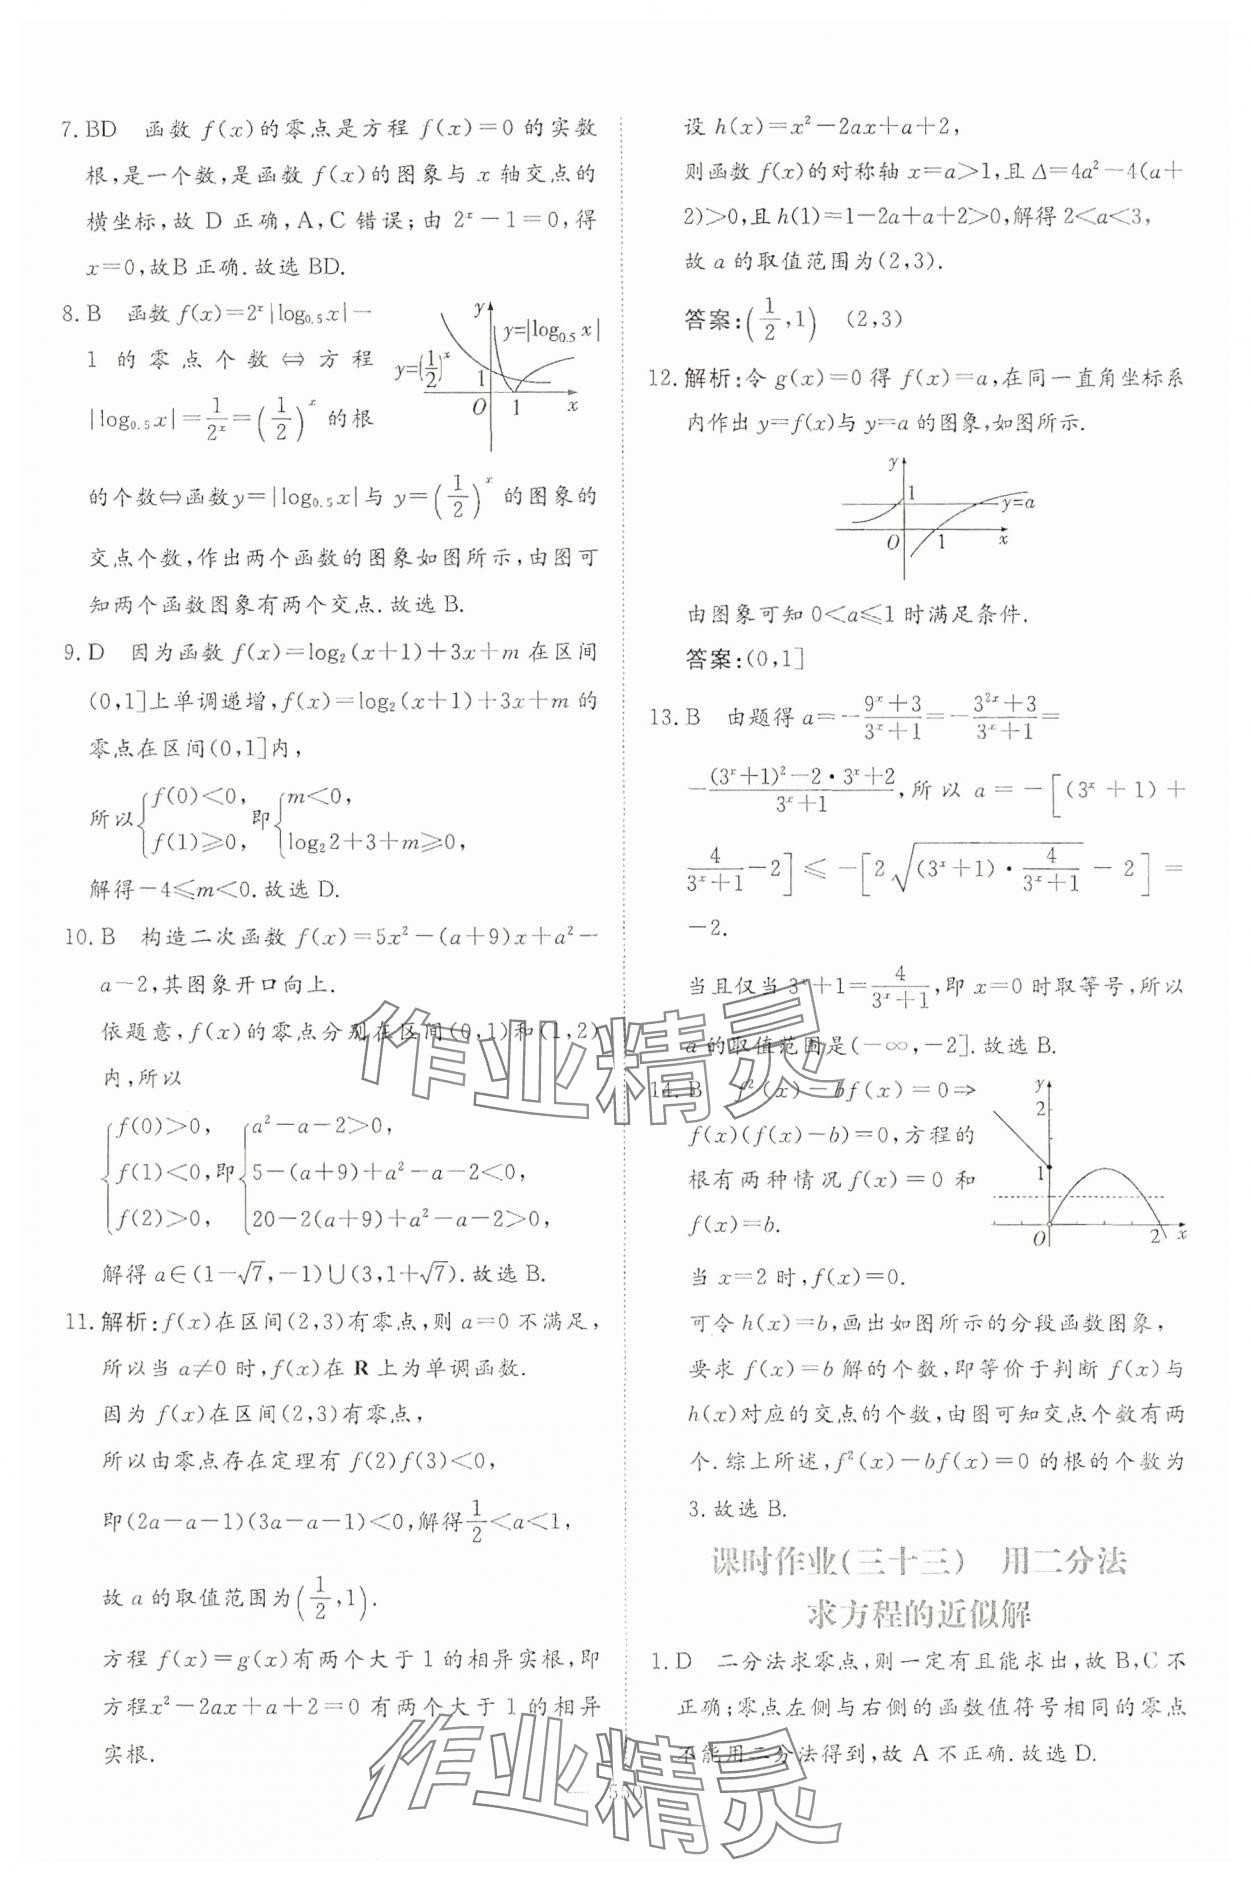 7. BD 函数 f(x)的零点是方程 f(x)=0 的实数
根,是一个数,是函数 f(x)的图象与 x 轴交点的
横坐标,故 D 正确,A,C 错误;由 2ˣ-1=0,得
x=0,故B 正确.故选 BD.
8. B 函数 f(x)=2ˣ|log₀.₅x|-
1 的零点个数⇔方程
|log₀.₅x|=1/2ˣ=(1/2)ˣ 的根
y
y=|log₀.₅x|
y=(1/2)ˣ
1
O 1 x
的个数⇔函数y=|log₀.₅x|与 y=(1/2)ˣ 的图象的
交点个数,作出两个函数的图象如图所示,由图可
知两个函数图象有两个交点.故选 B.
9. D 因为函数 f(x)=log₂(x+1)+3x+m 在区间
(0,1]上单调递增,f(x)=log₂(x+1)+3x+m 的
零点在区间(0,1]内,
所以{f(0)<0, f(1)≥0, 即{m<0, log₂2+3+m≥0,
解得-4≤m<0.故选 D.
10. B 构造二次函数 f(x)=5x²-(a+9)x+a²-
a-2,其图象开口向上.
依题意,f(x)的零点分别在区间(0,1)和(1,2)
内,所以
{f(0)>0, f(1)<0, f(2)>0, 即{a²-a-2>0, 5-(a+9)+a²-a-2<0, 20-2(a+9)+a²-a-2>0,
解得 a∈(1-√7,-1)∪(3,1+√7).故选 B.
11. 解析:f(x)在区间(2,3)有零点,则 a=0 不满足,
所以当 a≠0 时,f(x)在 R 上为单调函数.
因为 f(x)在区间(2,3)有零点,
所以由零点存在定理有 f(2)f(3)<0,
即(2a-a-1)(3a-a-1)<0,解得1/2<a<1,
故 a 的取值范围为(1/2,1).
方程 f(x)=g(x)有两个大于 1 的相异实根,即
方程x²-2ax+a+2=0 有两个大于 1 的相异
实根.
设 h(x)=x²-2ax+a+2,
则函数 f(x)的对称轴 x=a>1,且 Δ=4a²-4(a+
2)>0,且 h(1)=1-2a+a+2>0,解得 2<a<3,
故 a 的取值范围为(2,3).
答案:(1/2,1) (2,3)
12. 解析:令 g(x)=0 得 f(x)=a,在同一直角坐标系
内作出 y=f(x)与 y=a 的图象,如图所示.
y
1
y=a
O 1 x
由图象可知 0<a≤1 时满足条件.
答案:(0,1]
13. B 由题得 a=-(9ˣ+3)/(3ˣ+1)=-(3²ˣ+3)/(3ˣ+1)=
-((3ˣ+1)²-2·3ˣ+2)/(3ˣ+1),所以 a=-[(3ˣ+1)+
4/(3ˣ+1)-2]≤-[2√((3ˣ+1)·4/(3ˣ+1))-2]=
-2.
当且仅当 3ˣ+1=4/(3ˣ+1),即 x=0 时取等号,所以
a 的取值范围是(-∞,-2].故选 B.
14. B f²(x)-bf(x)=0⇒
f(x)(f(x)-b)=0,方程的
根有两种情况 f(x)=0 和
f(x)=b.
y
2
1
O 2 x
当 x=2 时,f(x)=0.
可令 h(x)=b,画出如图所示的分段函数图象,
要求 f(x)=b 解的个数,即等价于判断 f(x)与
h(x)对应的交点的个数,由图可知交点个数有两
个.综上所述,f²(x)-bf(x)=0 的根的个数为
3.故选 B.
课时作业(三十三) 用二分法
求方程的近似解
1. D 二分法求零点,则一定有且能求出,故 B,C 不
正确;零点左侧与右侧的函数值符号相同的零点
不能用二分法得到,故 A 不正确.故选 D.
作业精灵
作业精灵